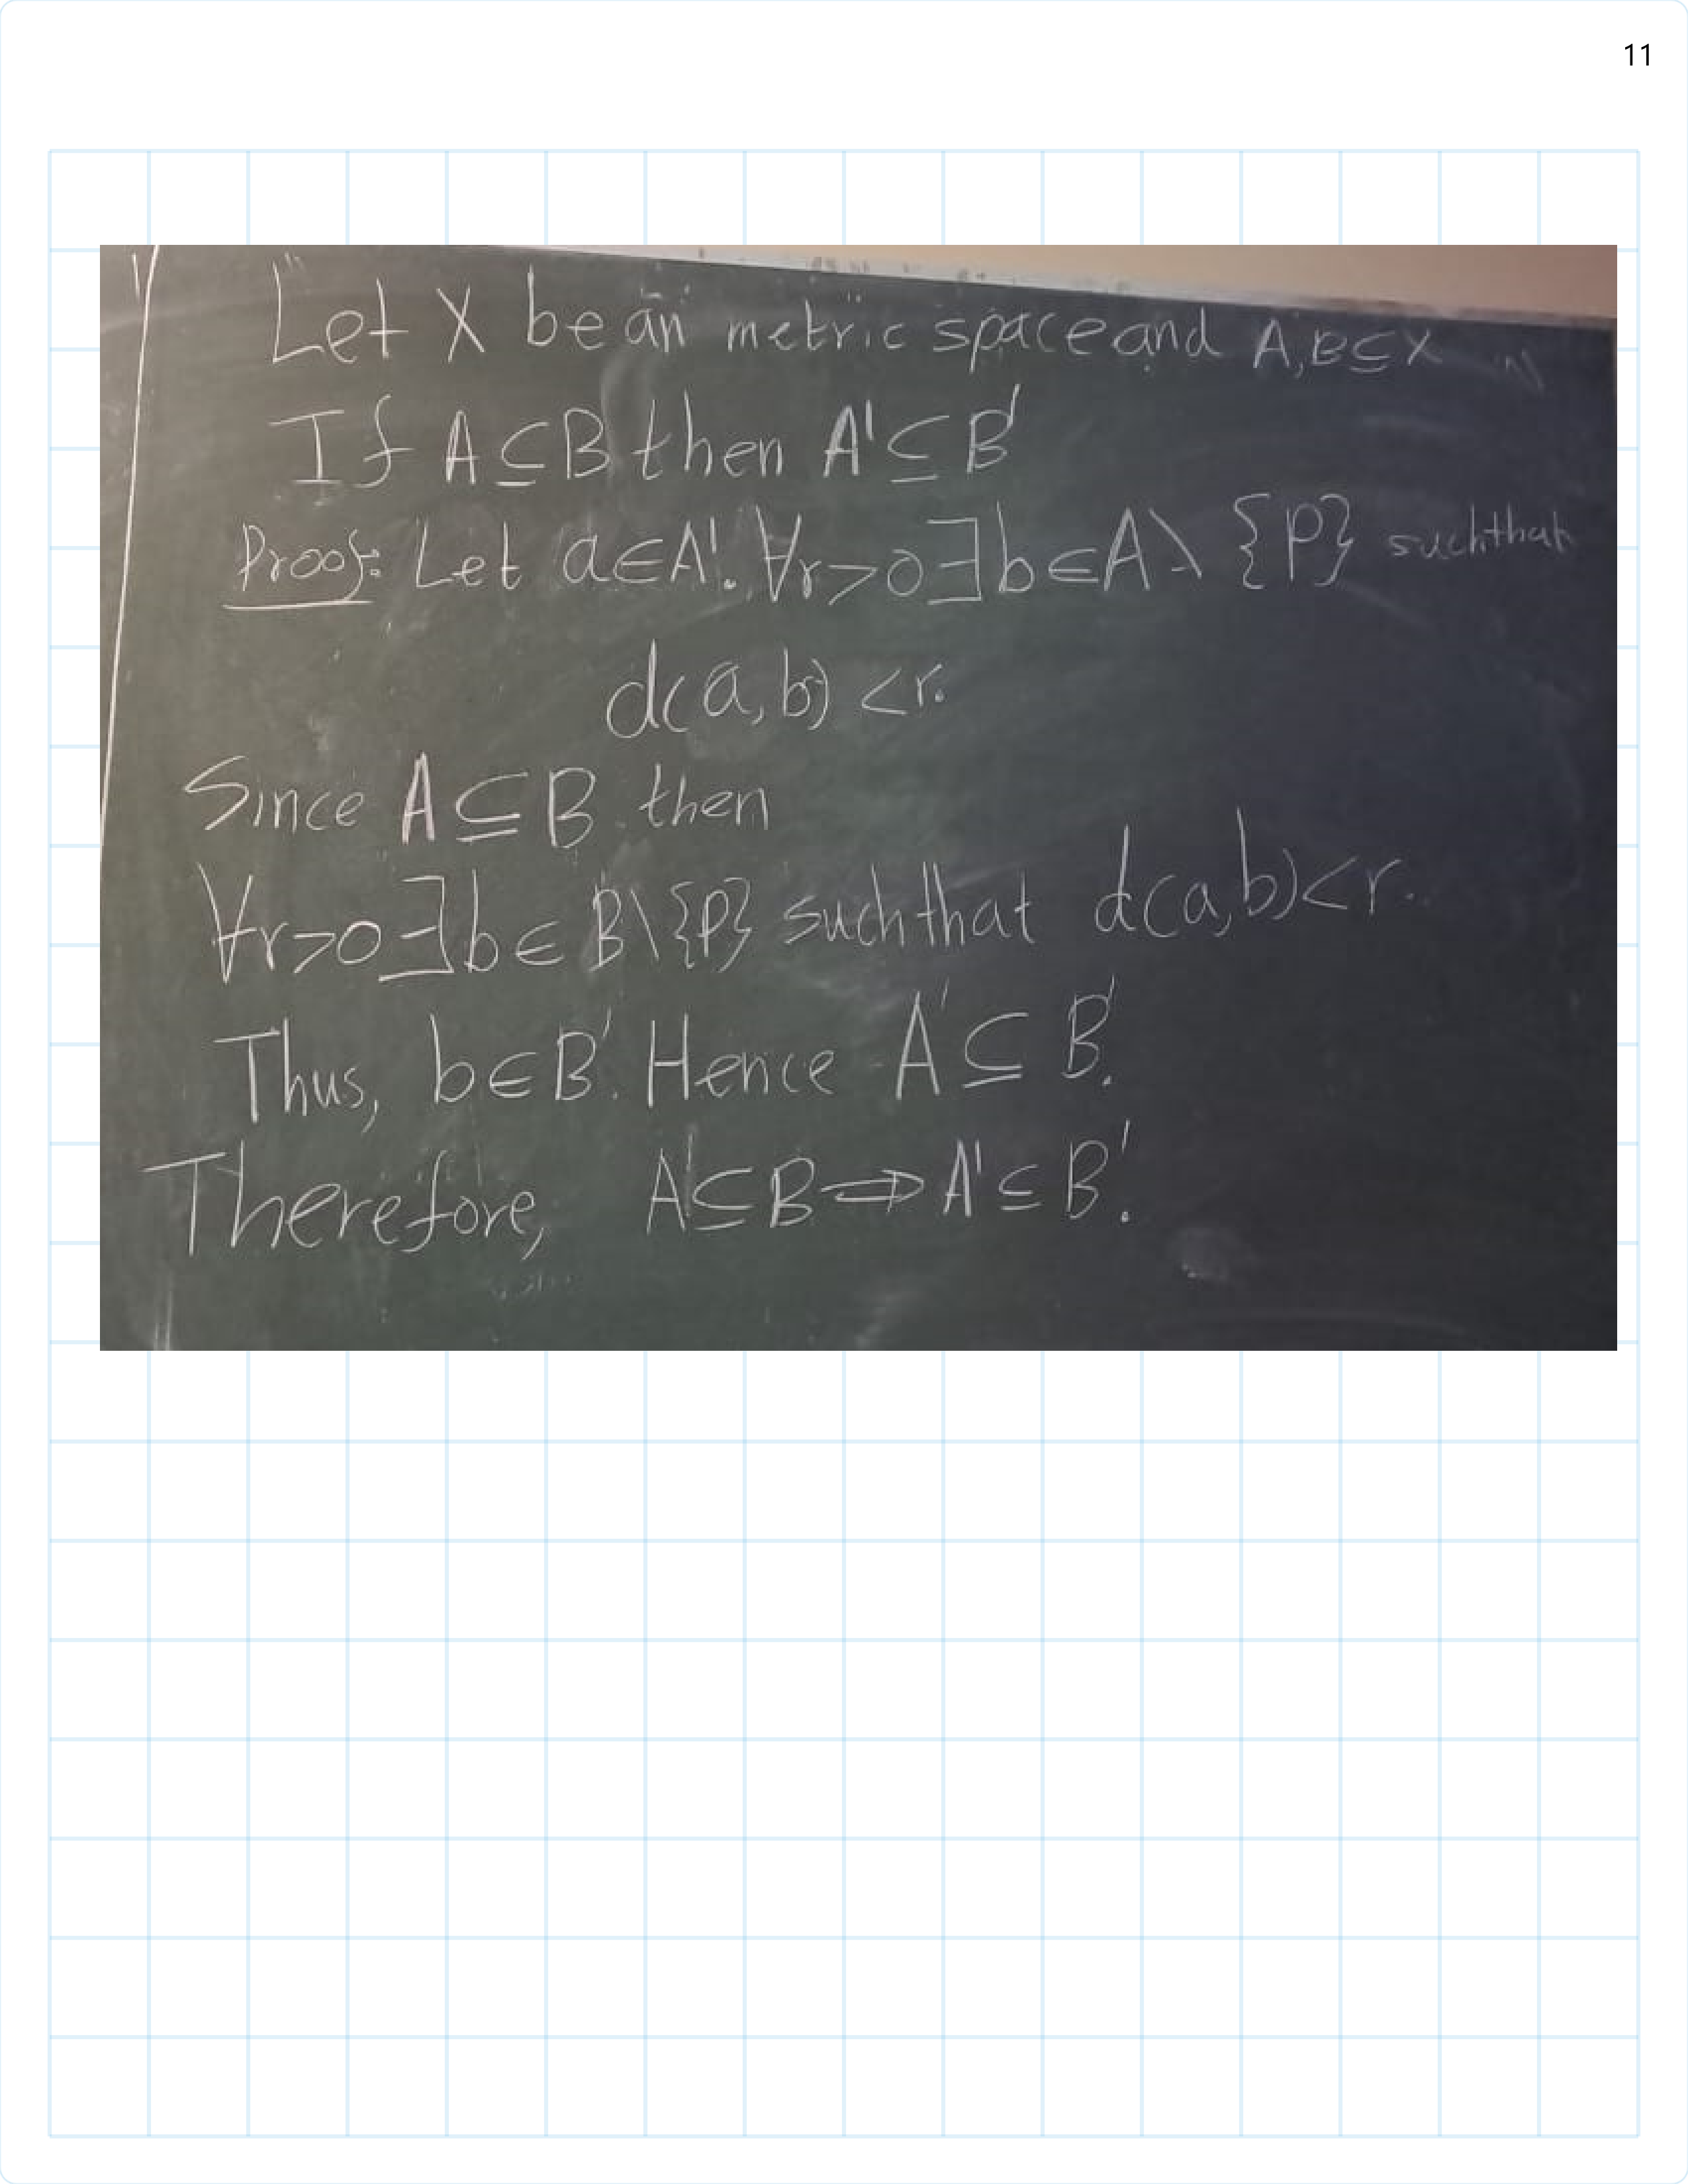 11
Let X be an metric space and A,B⊆X
If A⊆B then A'⊆B'
Proof: Let a∈A'. ∀r>0 ∃b∈A\{P} such that
d(a,b)<r.
Since A⊆B then
∀r>0 ∃b∈B\{P} such that d(a,b)<r.
Thus, b∈B'. Hence A'⊆B'.
Therefore, A⊆B⇒A'⊆B'.